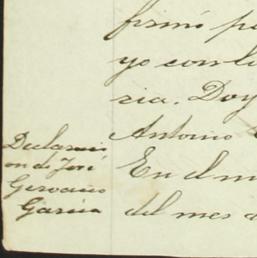 firmó
yo con
ria. Doy
Antonio
En el m
del mes
Declaraci
on de José
Gervacio
Garcia